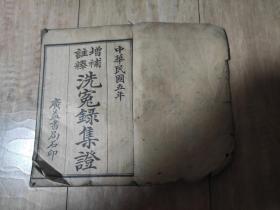 中華民國五年
增補
註釋
洗冤錄集證
廣益書局石印